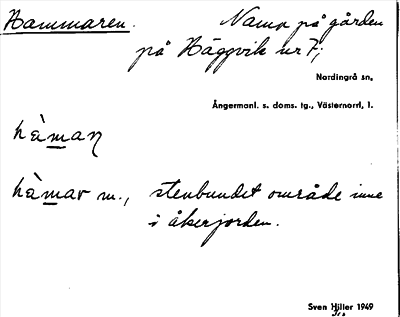 Hammaren. Namn på gården
på Häggvik nr 7;
Nordingrå sn,
Ångermanl. s. doms. tg., Västernorrl, l.
hàmaŋ
hàmar m., stenbundet område inne
i åkerjorden.
Sven Hiller 1949